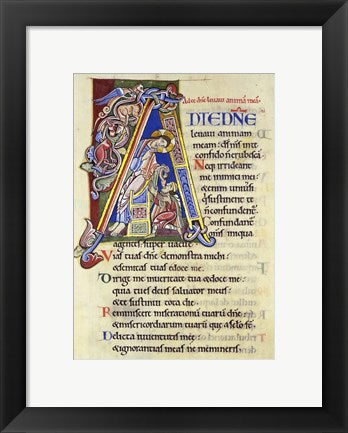 Ad te dñe levavi animam meam.
AD TE DÑE
levavi animam
meam: ds ms in te
confido n erubescā
Neq; irrideant
me inimici mei
&enim univsi
q sustinent te
n confundent
Confundant
omīs iniqua
agentes super vacue
Vias tuas dñe demonstra michi
& semitas tuas edoce me.
Dirige me in veritate tua & doce me
quia tu es deus salvator meus
& te sustinui tota die.
Reminiscere miserationū tuarū dñe
& misericordiarum tuarū que a sclo st.
Delicta iuventutis mee
& ignorantias meas ne memineris.